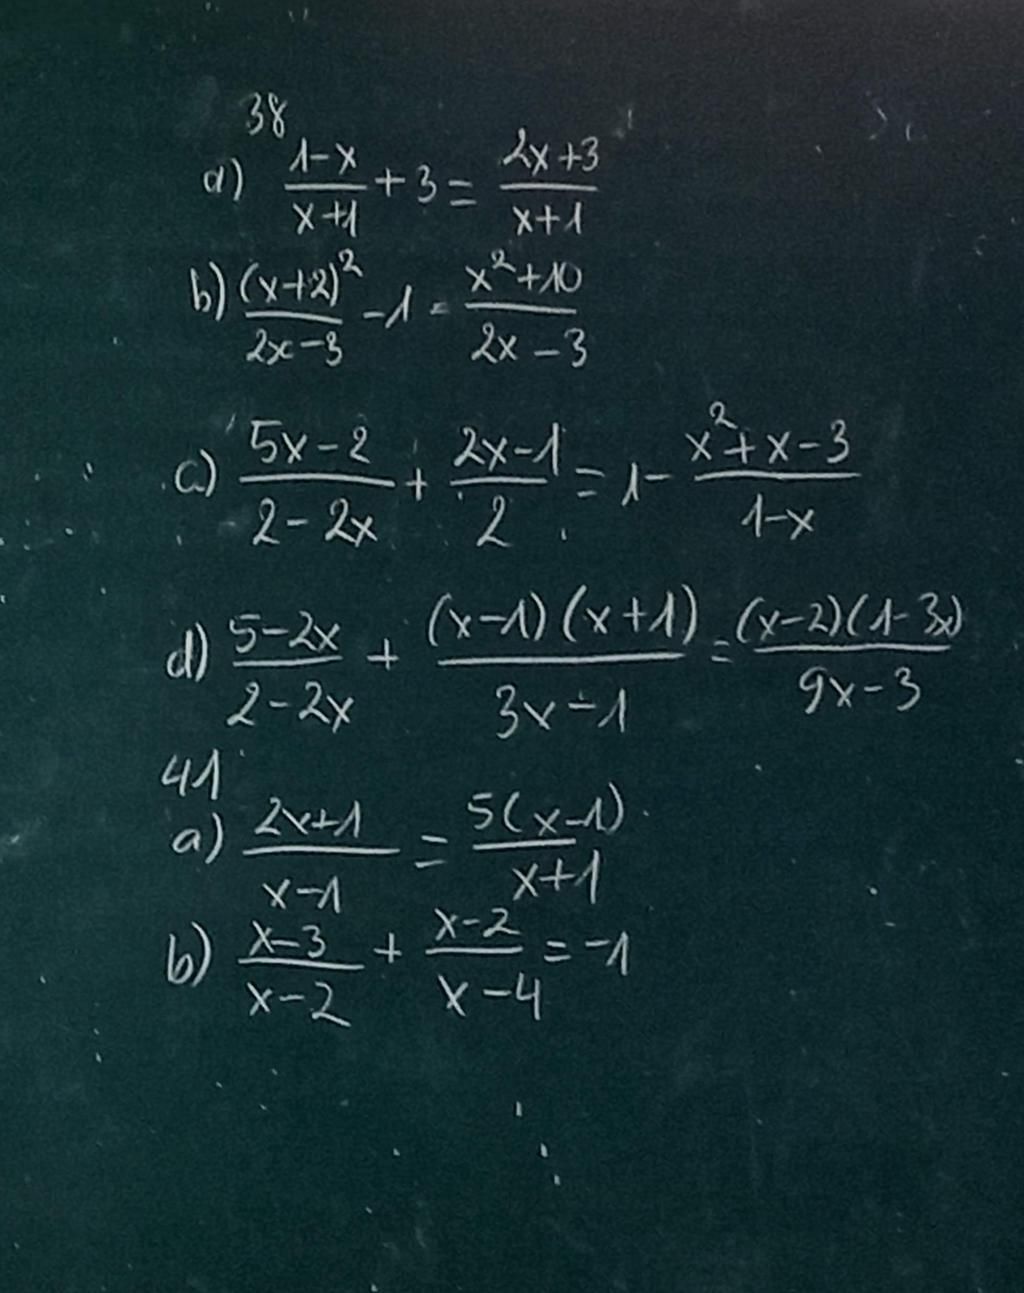 38
a) (1-x)/(x+1) + 3 = (2x+3)/(x+1)
b) (x+2)²/(2x-3) - 1 = (x²+10)/(2x-3)
c) (5x-2)/(2-2x) + (2x-1)/2 = 1 - (x²+x-3)/(1-x)
d) (5-2x)/(2-2x) + (x-1)(x+1)/(3x-1) = (x-2)(1-3x)/(9x-3)
41
a) (2x+1)/(x-1) = 5(x-1)/(x+1)
b) (x-3)/(x-2) + (x-2)/(x-4) = -1